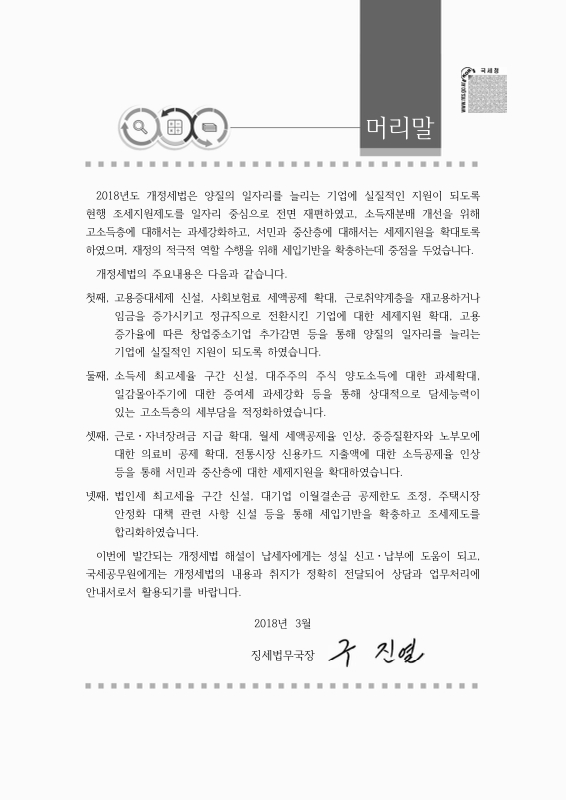 국세청
머리말
2018년도 개정세법은 양질의 일자리를 늘리는 기업에 실질적인 지원이 되도록
현행 조세지원제도를 일자리 중심으로 전면 재편하였고, 소득재분배 개선을 위해
고소득층에 대해서는 과세강화하고, 서민과 중산층에 대해서는 세제지원을 확대토록
하였으며, 재정의 적극적 역할 수행을 위해 세입기반을 확충하는데 중점을 두었습니다.
개정세법의 주요내용은 다음과 같습니다.
첫째, 고용증대세제 신설, 사회보험료 세액공제 확대, 근로취약계층을 재고용하거나
임금을 증가시키고 정규직으로 전환시킨 기업에 대한 세제지원 확대, 고용
증가율에 따른 창업중소기업 추가감면 등을 통해 양질의 일자리를 늘리는
기업에 실질적인 지원이 되도록 하였습니다.
둘째, 소득세 최고세율 구간 신설, 대주주의 주식 양도소득에 대한 과세확대,
일감몰아주기에 대한 증여세 과세강화 등을 통해 상대적으로 담세능력이
있는 고소득층의 세부담을 적정화하였습니다.
셋째, 근로・자녀장려금 지급 확대, 월세 세액공제율 인상, 중증질환자와 노부모에
대한 의료비 공제 확대, 전통시장 신용카드 지출액에 대한 소득공제율 인상
등을 통해 서민과 중산층에 대한 세제지원을 확대하였습니다.
넷째, 법인세 최고세율 구간 신설, 대기업 이월결손금 공제한도 조정, 주택시장
안정화 대책 관련 사항 신설 등을 통해 세입기반을 확충하고 조세제도를
합리화하였습니다.
이번에 발간되는 개정세법 해설이 납세자에게는 성실 신고・납부에 도움이 되고,
국세공무원에게는 개정세법의 내용과 취지가 정확히 전달되어 상담과 업무처리에
안내서로서 활용되기를 바랍니다.
2018년 3월
징세법무국장 구 진열